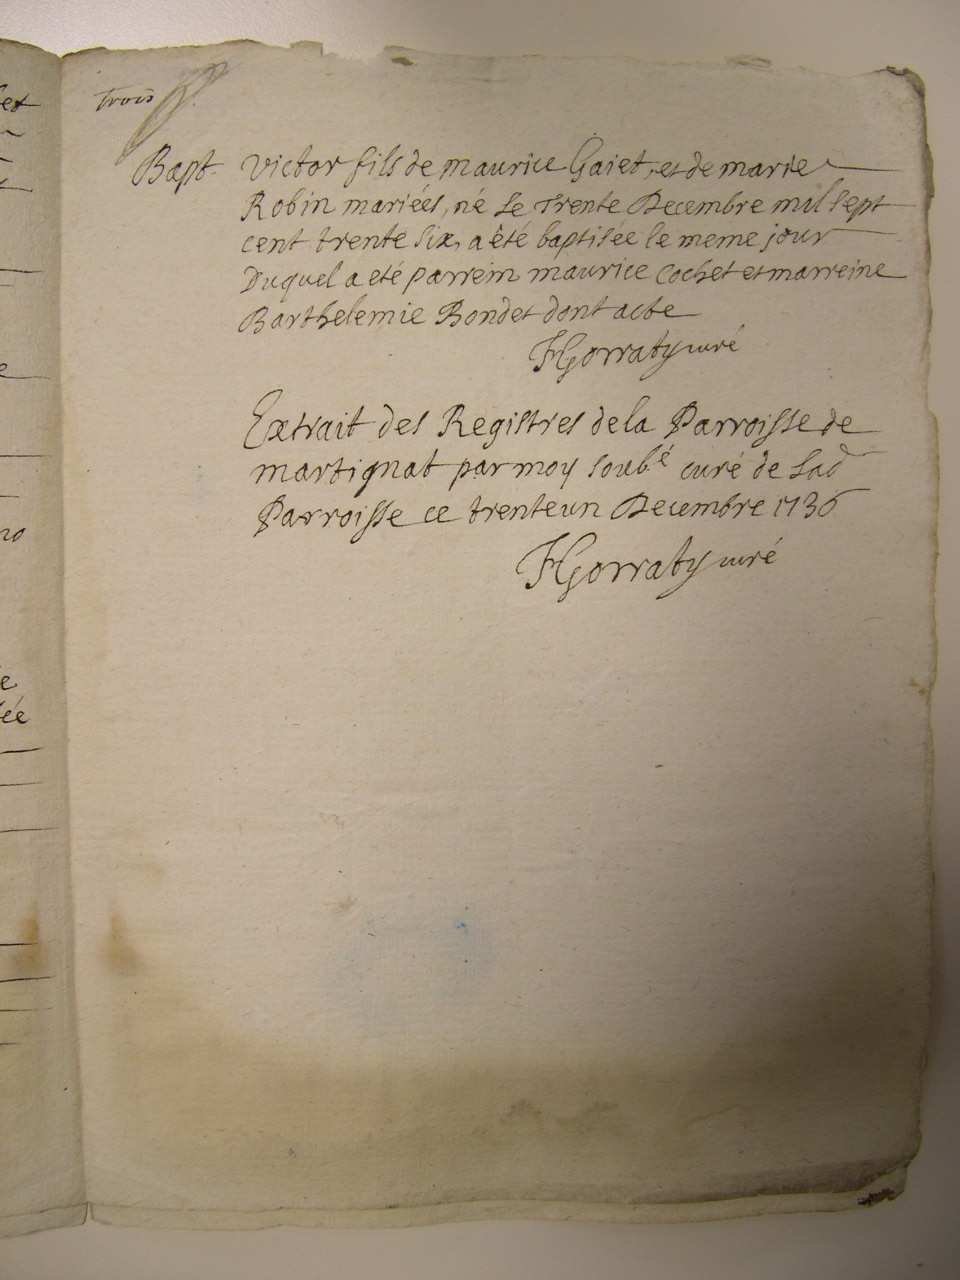 trois
Bapt. victor fils de maurice Gaiet, et de marie
Robin mariées, né le trente Decembre mil sept
cent trente six, a été baptisée le meme jour
Duquel a eté parrein maurice Cochet et marreine
Barthelemie Bondet dont acte
HGorraty curé
Extrait des Registres dela Parroisse de
martignat par moy soubé curé de lad
Parroisse ce trenteun Decembre 1736
HGorraty curé